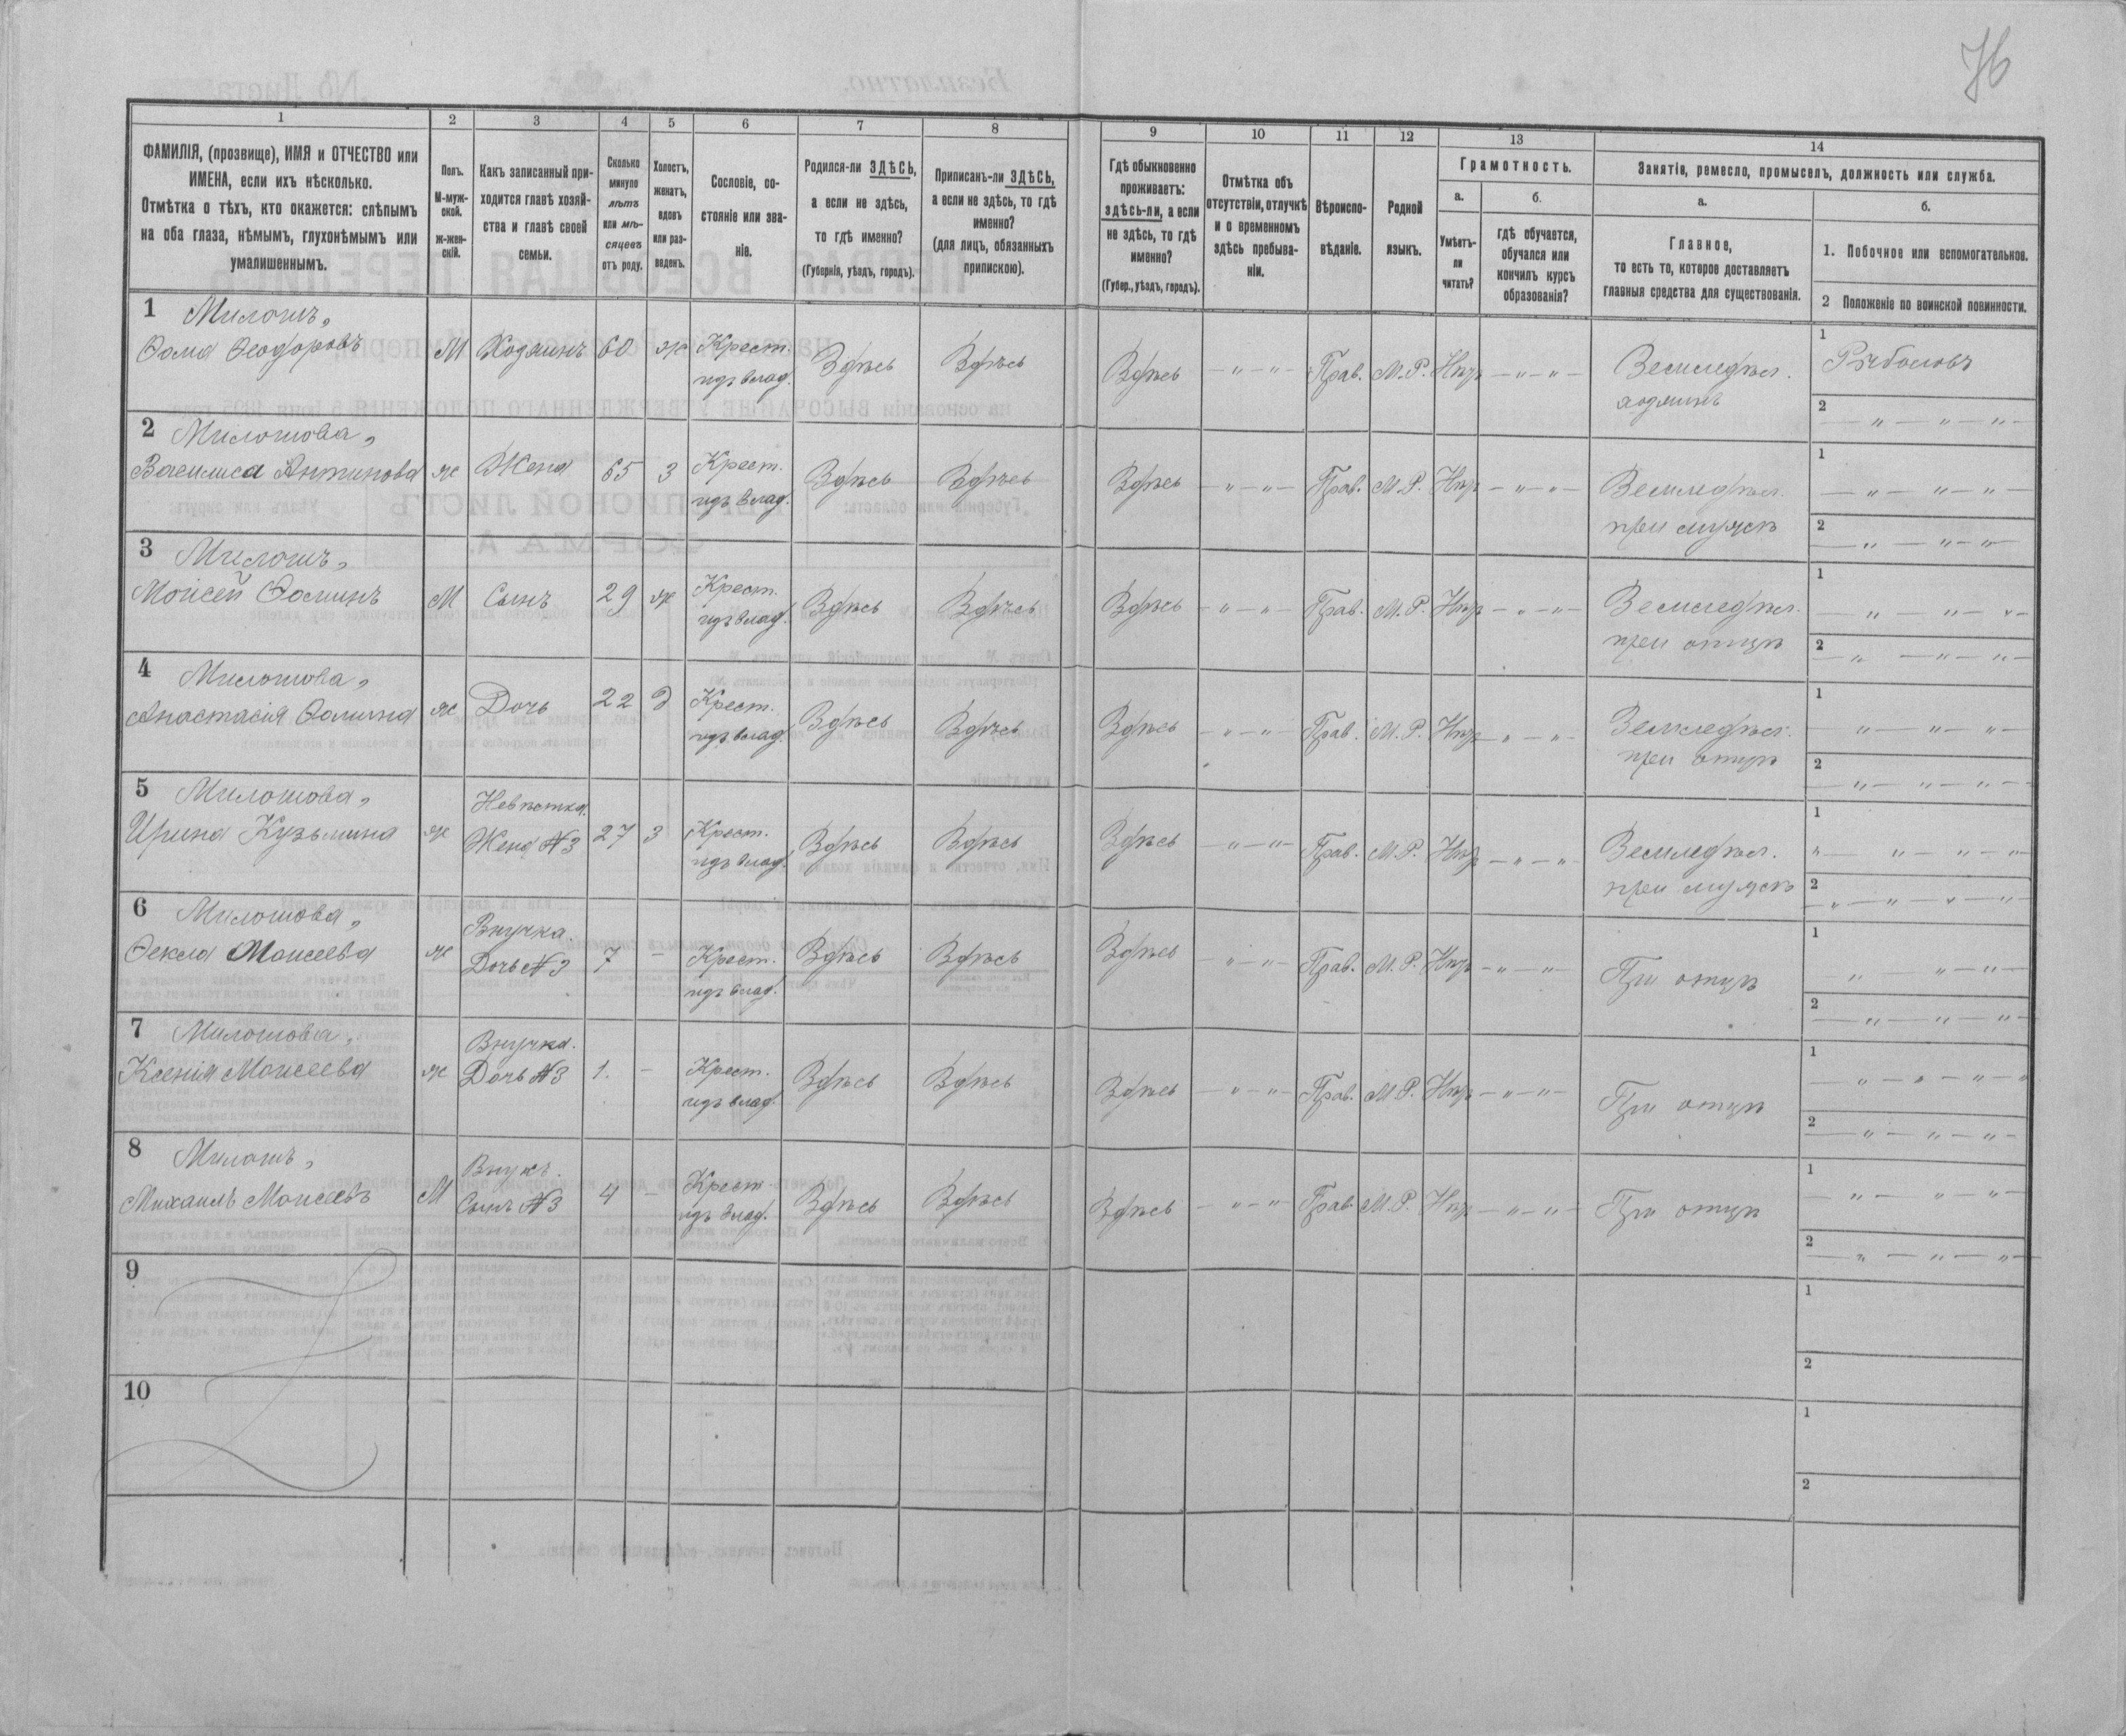 76
1 2 3 4 5 6 7 8 9 10 11 12 13 14
ФАМИЛІЯ, (прозвище), ИМЯ и ОТЧЕСТВО или
ИМЕНА, если ихъ нѣсколько.
Отмѣтка о тѣхъ, кто окажется: слѣпымъ
на оба глаза, нѣмымъ, глухонѣмымъ или
умалишеннымъ.
Полъ.
М-муж-
ской.
ж-жен-
скій.
Какъ записанный при-
ходится главѣ хозяй-
ства и главѣ своей
семьи.
Сколько
минуло
лѣтъ
или мѣ-
сяцевъ
отъ роду.
Холостъ,
женатъ,
вдовъ
или раз-
веденъ.
Сословіе, со-
стояніе или зва-
ніе.
Родился-ли ЗДѢСЬ,
а если не здѣсь,
то гдѣ именно?
(Губернія, уѣздъ, городъ).
Приписанъ-ли ЗДѢСЬ,
а если не здѣсь, то гдѣ
именно?
(для лицъ, обязанныхъ
припискою).
Гдѣ обыкновенно
проживаетъ:
здѣсь-ли, а если
не здѣсь, то гдѣ
именно?
(Губер., уѣздъ, городъ).
Отмѣтка объ
отсутствіи, отлучкѣ
и о временномъ
здѣсь пребыва-
ніи.
Вѣроиспо-
вѣданіе.
Родной
языкъ.
Грамотность.
а.
Умѣетъ-
ли
читать?
б.
гдѣ обучается,
обучался или
кончилъ курсъ
образованія?
Занятіе, ремесло, промыселъ, должность или служба.
а.
Главное,
то есть то, которое доставляетъ
главныя средства для существованія.
б.
1. Побочное или вспомогательное.
2 Положеніе по воинской повинности.
1 Милошъ,
Ѳома Ѳеодоровъ М Хозяинъ 60 ж Крест.
изъ влад. Здѣсь Здѣсь Здѣсь — " — " — Прав. М.Р. Нѣтъ — " — " — Земледѣл.
хозяинъ 1 Рыболовъ
2 — " — " — " —
2 Милошова,
Василиса Антинова ж Жена 65 З Крест.
изъ влад. Здѣсь Здѣсь Здѣсь — " — " — Прав. М.Р. Нѣтъ — " — " — Земледѣл.
при мужѣ 1 — " — " — " —
2 — " — " — " —
3 Милошъ,
Моисей Ѳоминъ М Сынъ 29 ж Крест.
изъ влад. Здѣсь Здѣсь Здѣсь — " — " — Прав. М.Р. Нѣтъ — " — " — Земледѣл.
при отцѣ 1 — " — " — " —
2 — " — " — " —
4 Милошова,
Анастасія Ѳомина ж Дочь 22 д Крест.
изъ влад. Здѣсь Здѣсь Здѣсь — " — " — Прав. М.Р. Нѣтъ — " — " — Земледѣл.
при отцѣ 1 — " — " — " —
2 — " — " — " —
5 Милошова,
Ирина Кузьмина ж Невѣстка.
Жена №3 27 З Крест.
изъ влад. Здѣсь Здѣсь Здѣсь — " — " — Прав. М.Р. Нѣтъ — " — " — Земледѣл.
при мужѣ 1 " — " — " — " —
2 — " — " — " — " —
6 Милошова,
Ѳекла Моисеева ж Внучка.
Дочь №3 7 — Крест.
изъ влад. Здѣсь Здѣсь Здѣсь — " — " — Прав. М.Р. Нѣтъ — " — " — При отцѣ 1 — " — " — " —
2 — " — " — " —
7 Милошова,
Ксенія Моисеева ж Внучка.
Дочь №3 1. — Крест.
изъ влад. Здѣсь Здѣсь Здѣсь — " — " — Прав. М.Р. Нѣтъ — " — " — При отцѣ 1 — " — " — " — "
2 — " — " — " —
8 Милошъ,
Михаилъ Моисеевъ М Внукъ.
Сынъ №3 4 — Крест.
изъ влад. Здѣсь Здѣсь Здѣсь — " — " — Прав. М.Р. Нѣтъ — " — " — При отцѣ 1 — " — " — " —
2 — " — " — " —
9 1
2
10 1
2